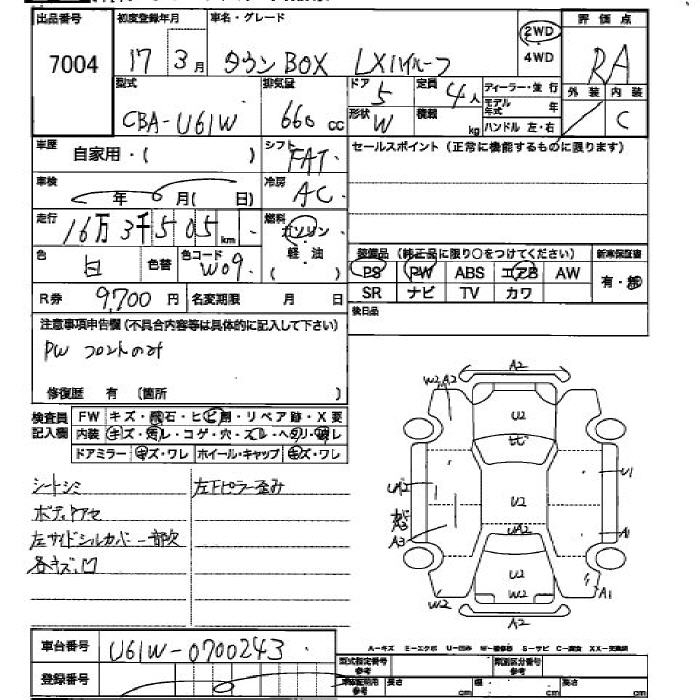 出品番号 初度登録年月 車名・グレード 2WD 評価点
7004 17 3月 タウンBOX LXハイルーフ 4WD RA
型式 排気量 ドア 5 定員 4人 ディーラー・並行 外装 内装
CBA-U61W 660 cc 形状 W 積載 kg モデル年式 年 C
ハンドル 左・右
車歴 自家用・( ) シフト FAT セールスポイント(正常に機能するものに限ります)
車検 年 月( 日) 冷房 AC
走行 16万3千505km 燃料 ガソリン・軽油( )
色 白 色替 色コード W09 装備品(純正品に限り○をつけてください) 新車保証書
PS PW ABS エアB AW 有・無
R券 9,700円 名変期限 月 日 SR ナビ TV カワ
注意事項申告欄(不具合内容等は具体的に記入して下さい) 後日品
PW フロントのみ
修復歴 有(箇所 )
検査員記入欄 FW キズ・飛石・ヒビ割・リペア跡・X要
内装 キズ・汚レ・コゲ・穴・スレ・ヘタリ・破レ
ドアミラー キズ・ワレ ホイール・キャップ キズ・ワレ
シートシミ 左下ピラー歪み
ボディヤケ
左サイドシルカバー一部欠
各キズ、凹
A2
W2 A2
U2
U1
UA2
U2
A3
A3
A1
UA2
U2
W2
W2
A1
A2
車台番号 U61W-0700243
登録番号
A-キズ E-エクボ U-凹み W-補修跡 S-サビ C-腐食 XX-交換済
型式指定番号 参考 類別区分番号 参考
長さ cm 幅 cm 高さ cm